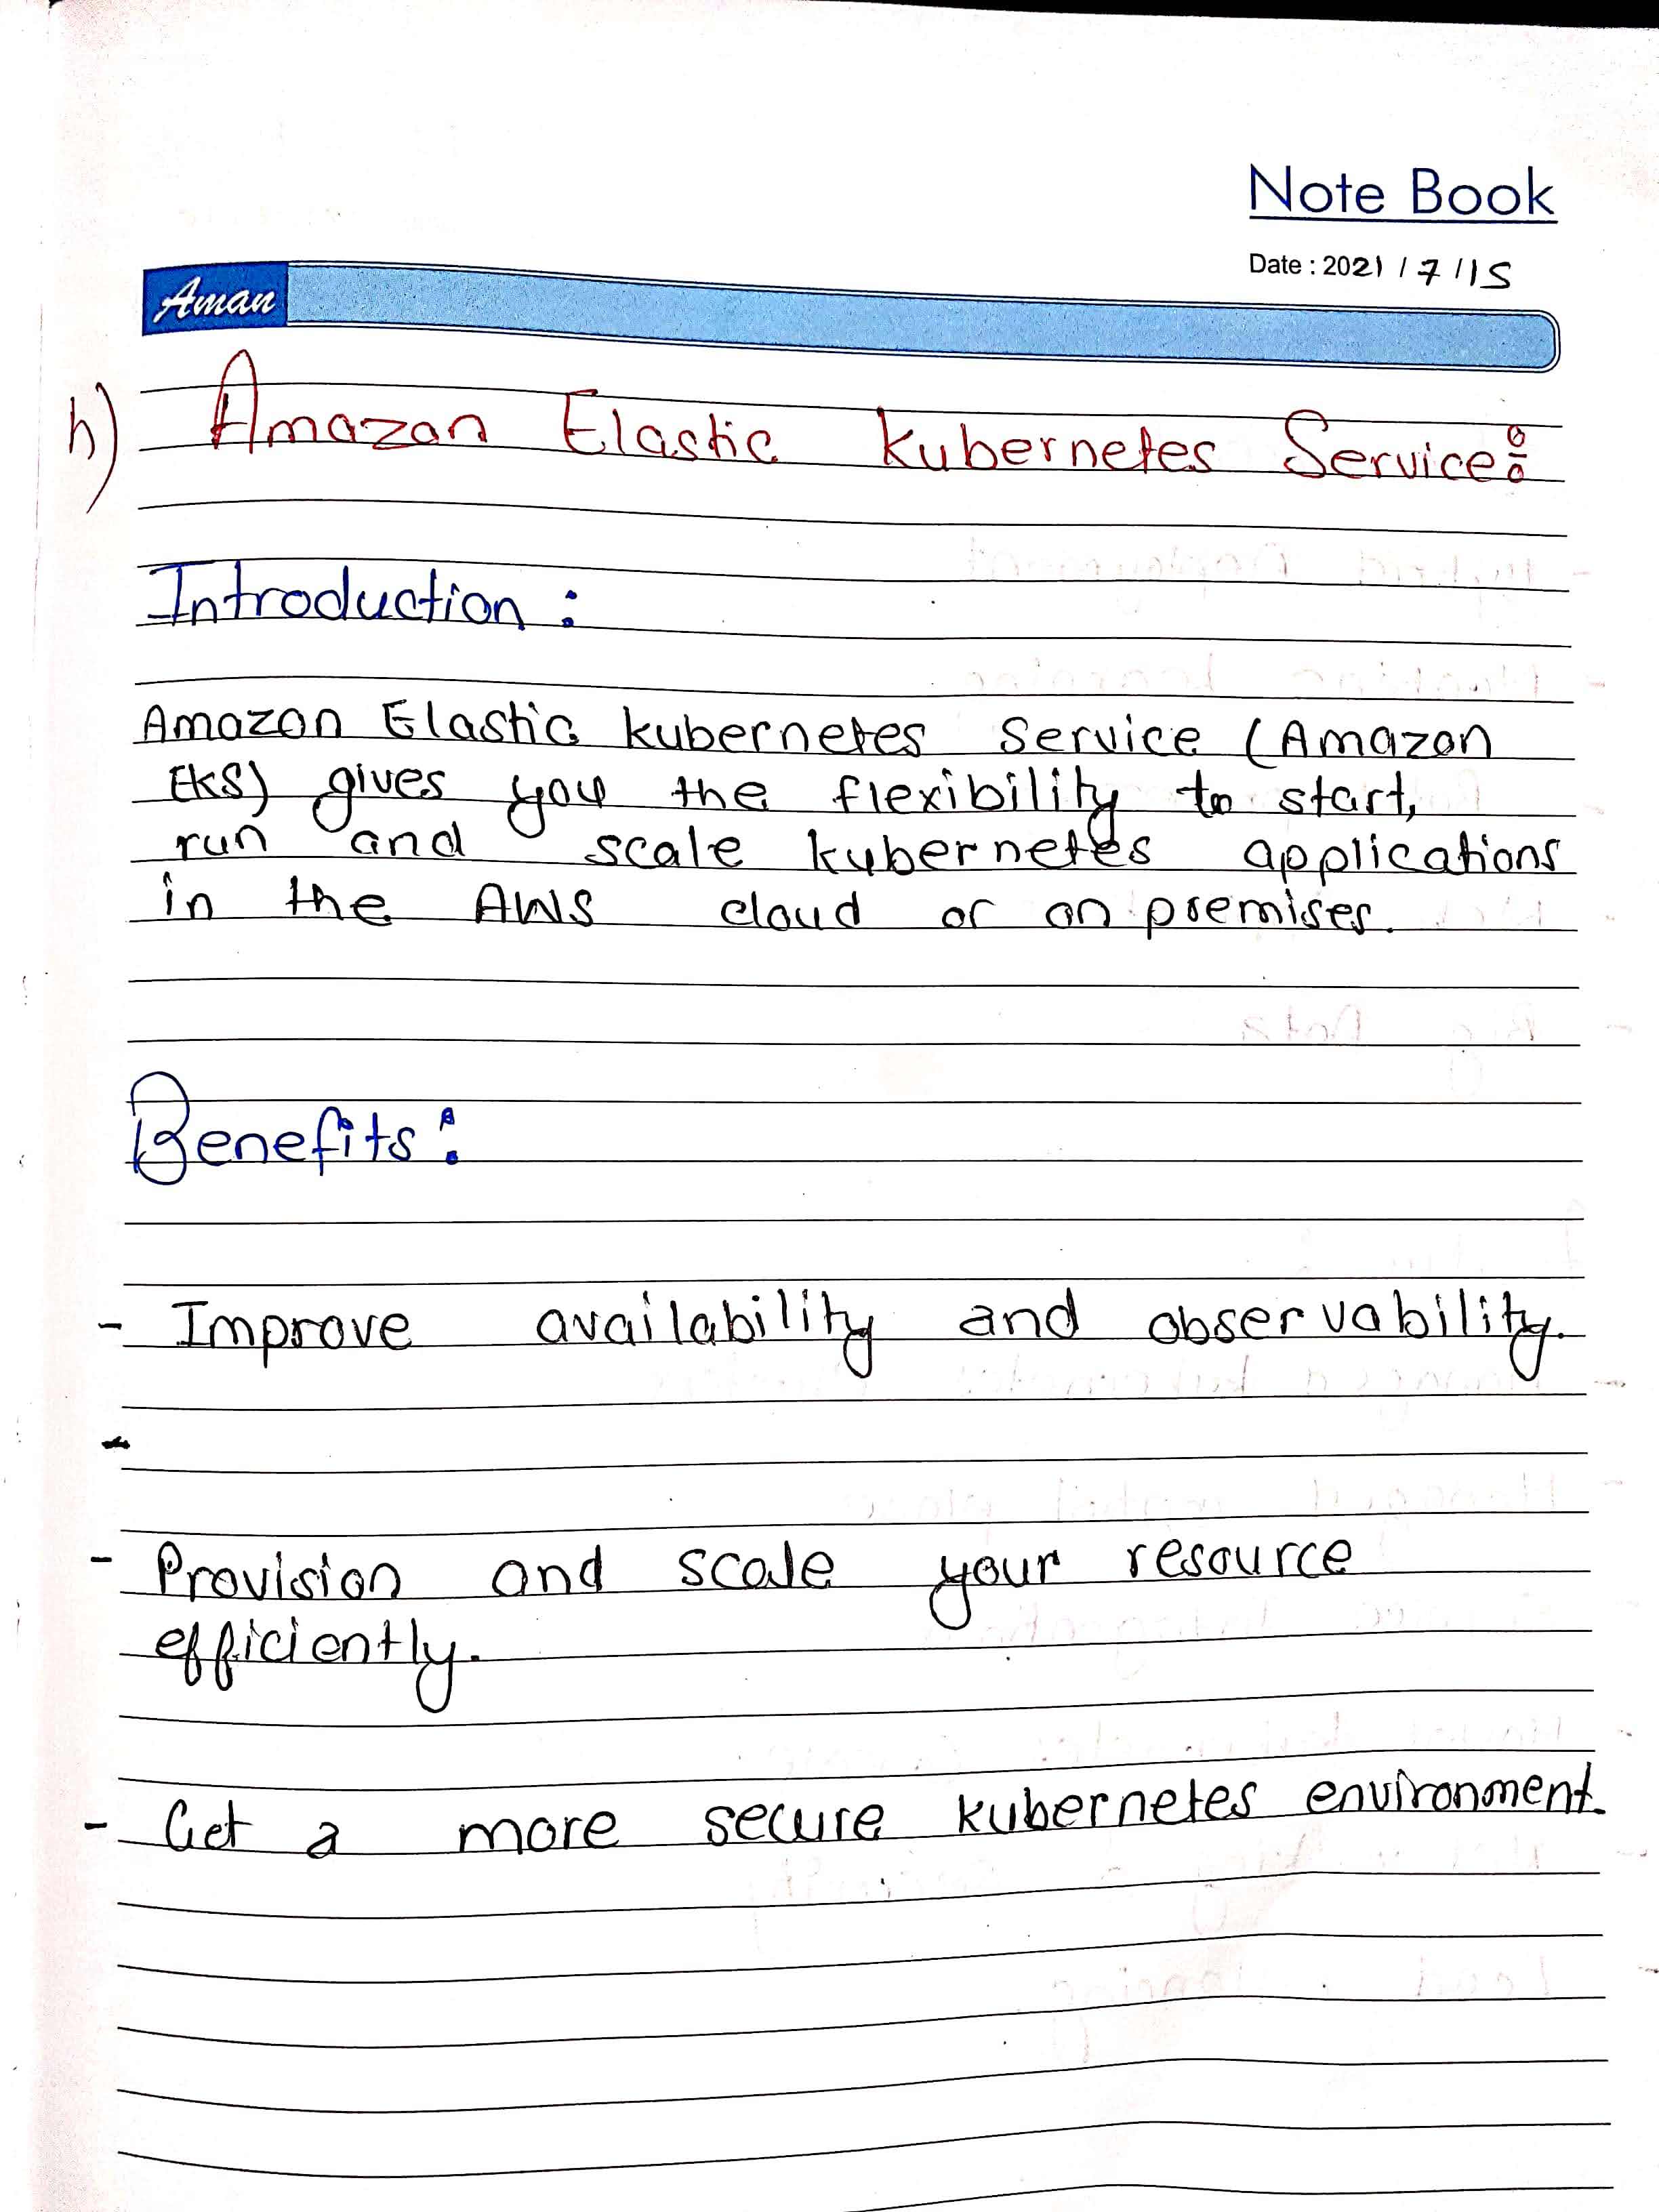 Note Book
Date : 2021 / 7 / 15
Aman
h) Amazon Elastic Kubernetes Service:
Introduction :
Amazon Elastic kubernetes Service (Amazon
EKS) gives you the flexibility to start,
run and scale kubernetes applications
in the AWS cloud or on premises.
Benefits :
- Improve availability and observability.
-
- Provision and scale your resource
efficiently.
- Get a more secure kubernetes environment.